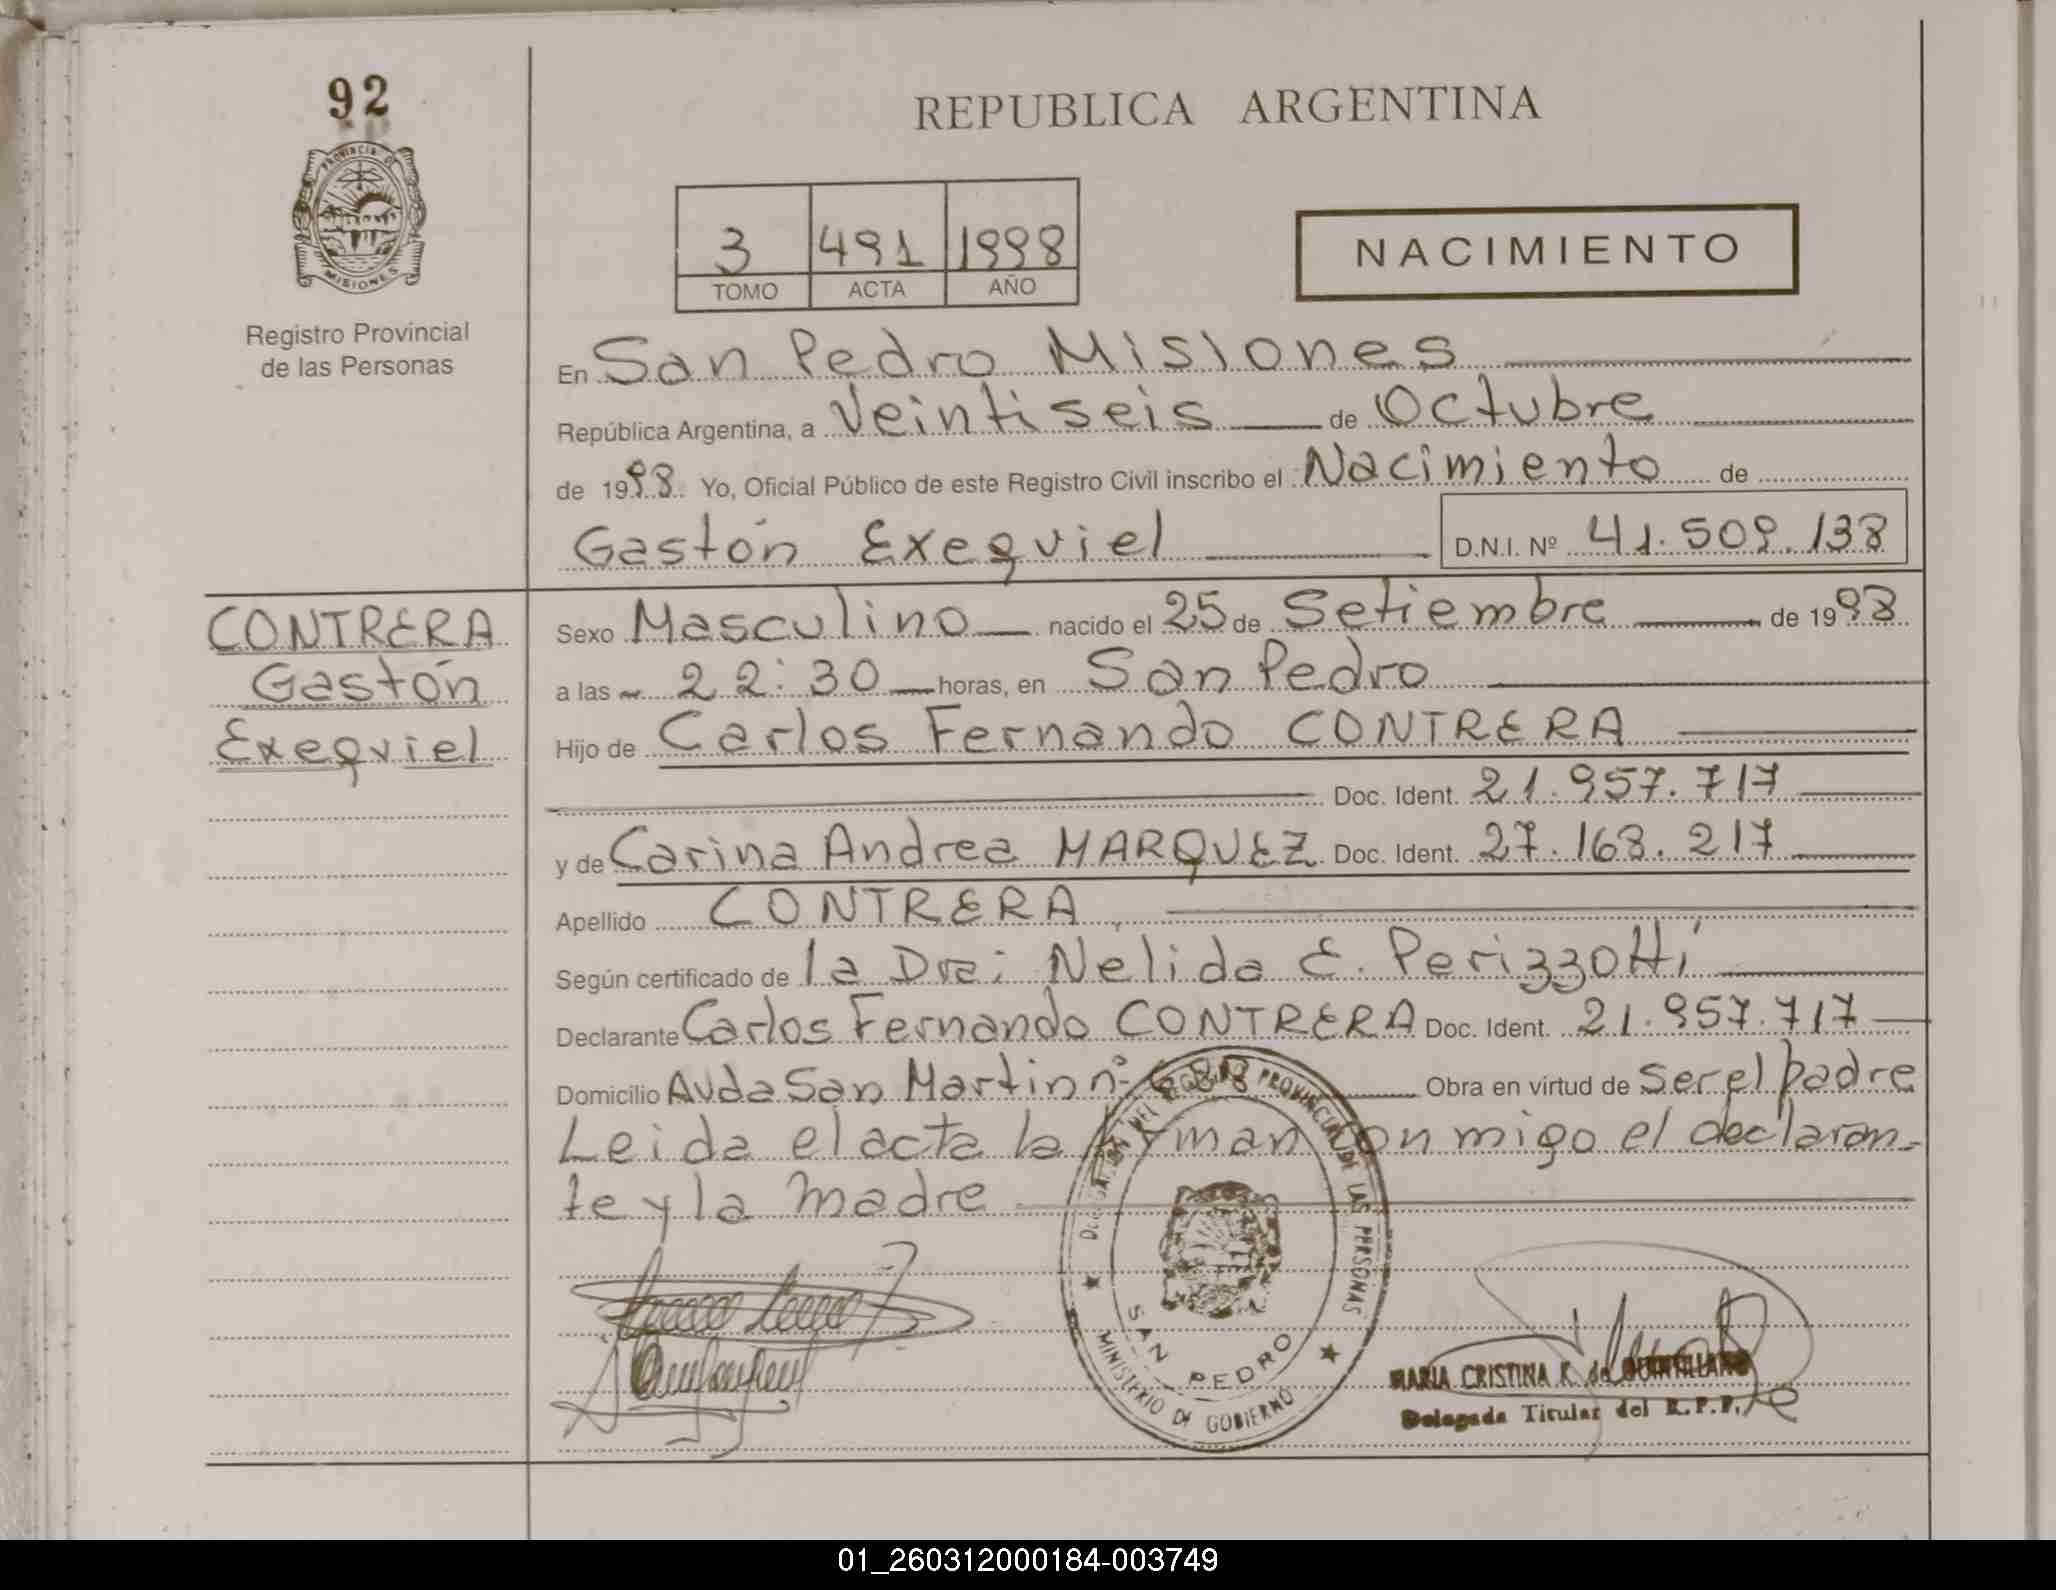 92
PROVINCIA DE
MISIONES
Registro Provincial
de las Personas
REPUBLICA ARGENTINA
3 491 1998
TOMO ACTA AÑO
NACIMIENTO
En San Pedro Misiones
República Argentina, a Veintiseis de Octubre
de 1998. Yo, Oficial Público de este Registro Civil inscribo el Nacimiento de
Gastón Exequiel D.N.I. Nº 41.509.138
CONTRERA
Gastón
Exequiel
Sexo Masculino nacido el 25 de Setiembre de 1998
a las 22:30 horas, en San Pedro
Hijo de Carlos Fernando CONTRERA
Doc. Ident. 21.957.717
y de Carina Andrea MARQUEZ Doc. Ident. 27.168.217
Apellido CONTRERA
Según certificado de la Dra: Nelida E. Perizzotti
Declarante Carlos Fernando CONTRERA Doc. Ident. 21.957.717
Domicilio Avda San Martin nº 688 Obra en virtud de ser el padre
Leida el acta la firman con migo el declaran-
te y la madre
DELEGACION DEL REGISTRO PROVINCIAL DE LAS PERSONAS
SAN PEDRO
MINISTERIO DE GOBIERNO
MARIA CRISTINA K. de QUINTILLANO
Delegada Titular del R.P.P.
01_260312000184-003749